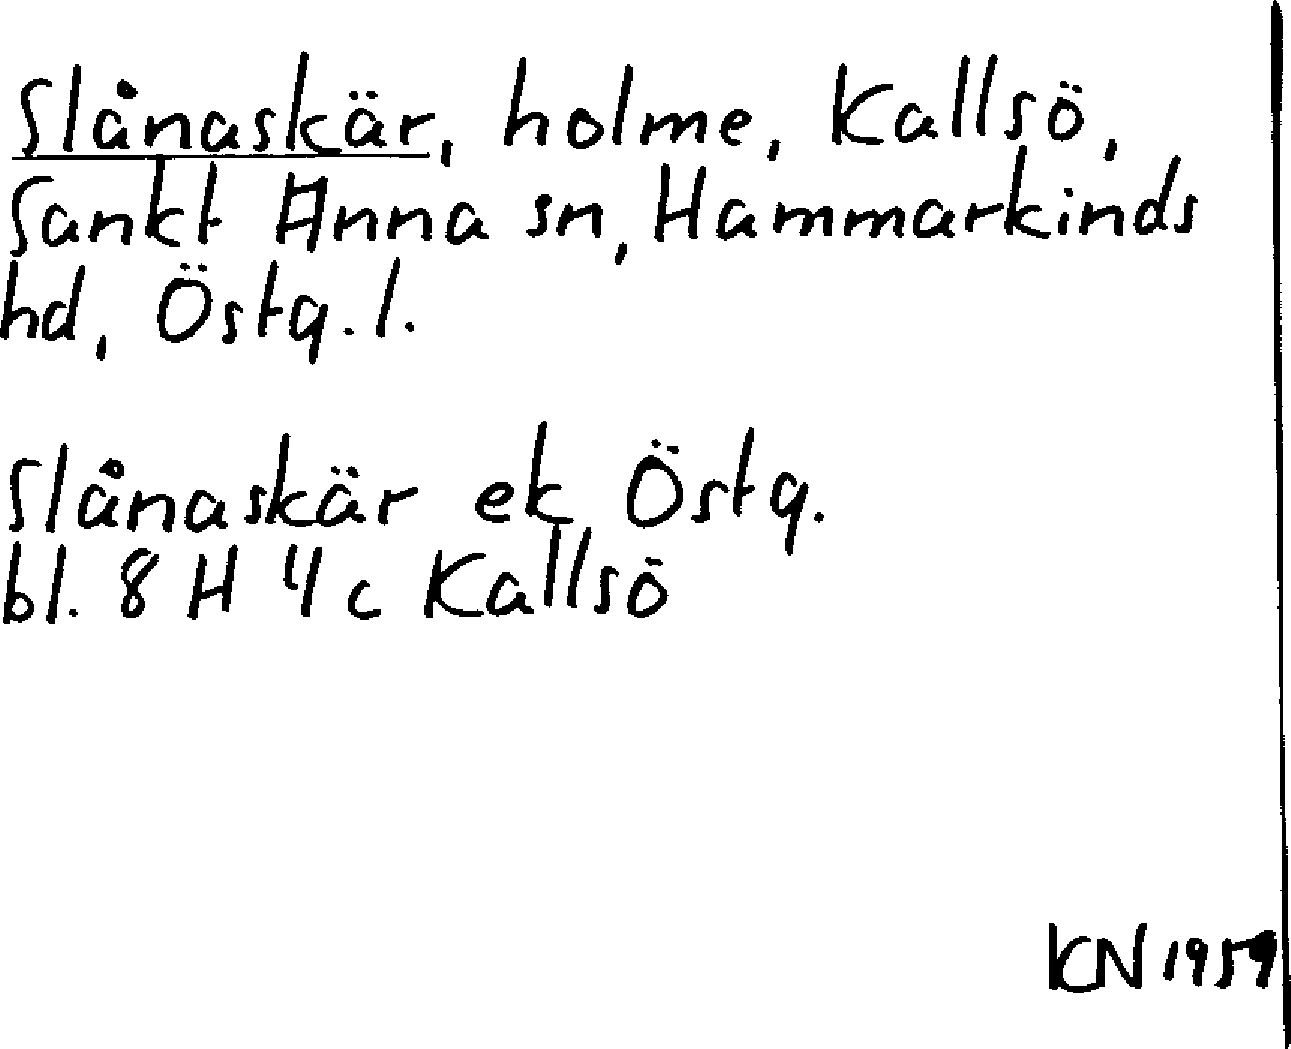 Slånaskär, holme, Kallsö,
Sankt Anna sn, Hammarkinds
hd, Östg. l.
Slånaskär ek Östg.
bl. 8 H 4 c Kallsö
KN 1959